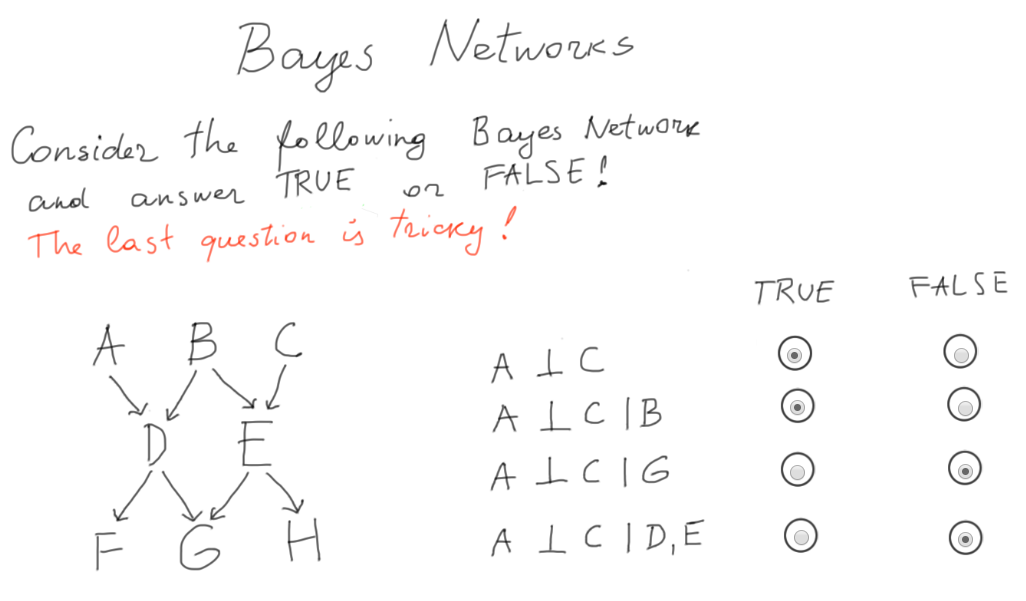 Bayes Networks
Consider the following Bayes Network
and answer TRUE or FALSE!
The last question is tricky!
TRUE FALSE
A B C
A ⊥ C
A ⊥ C | B
D E
A ⊥ C | G
F G H
A ⊥ C | D, E